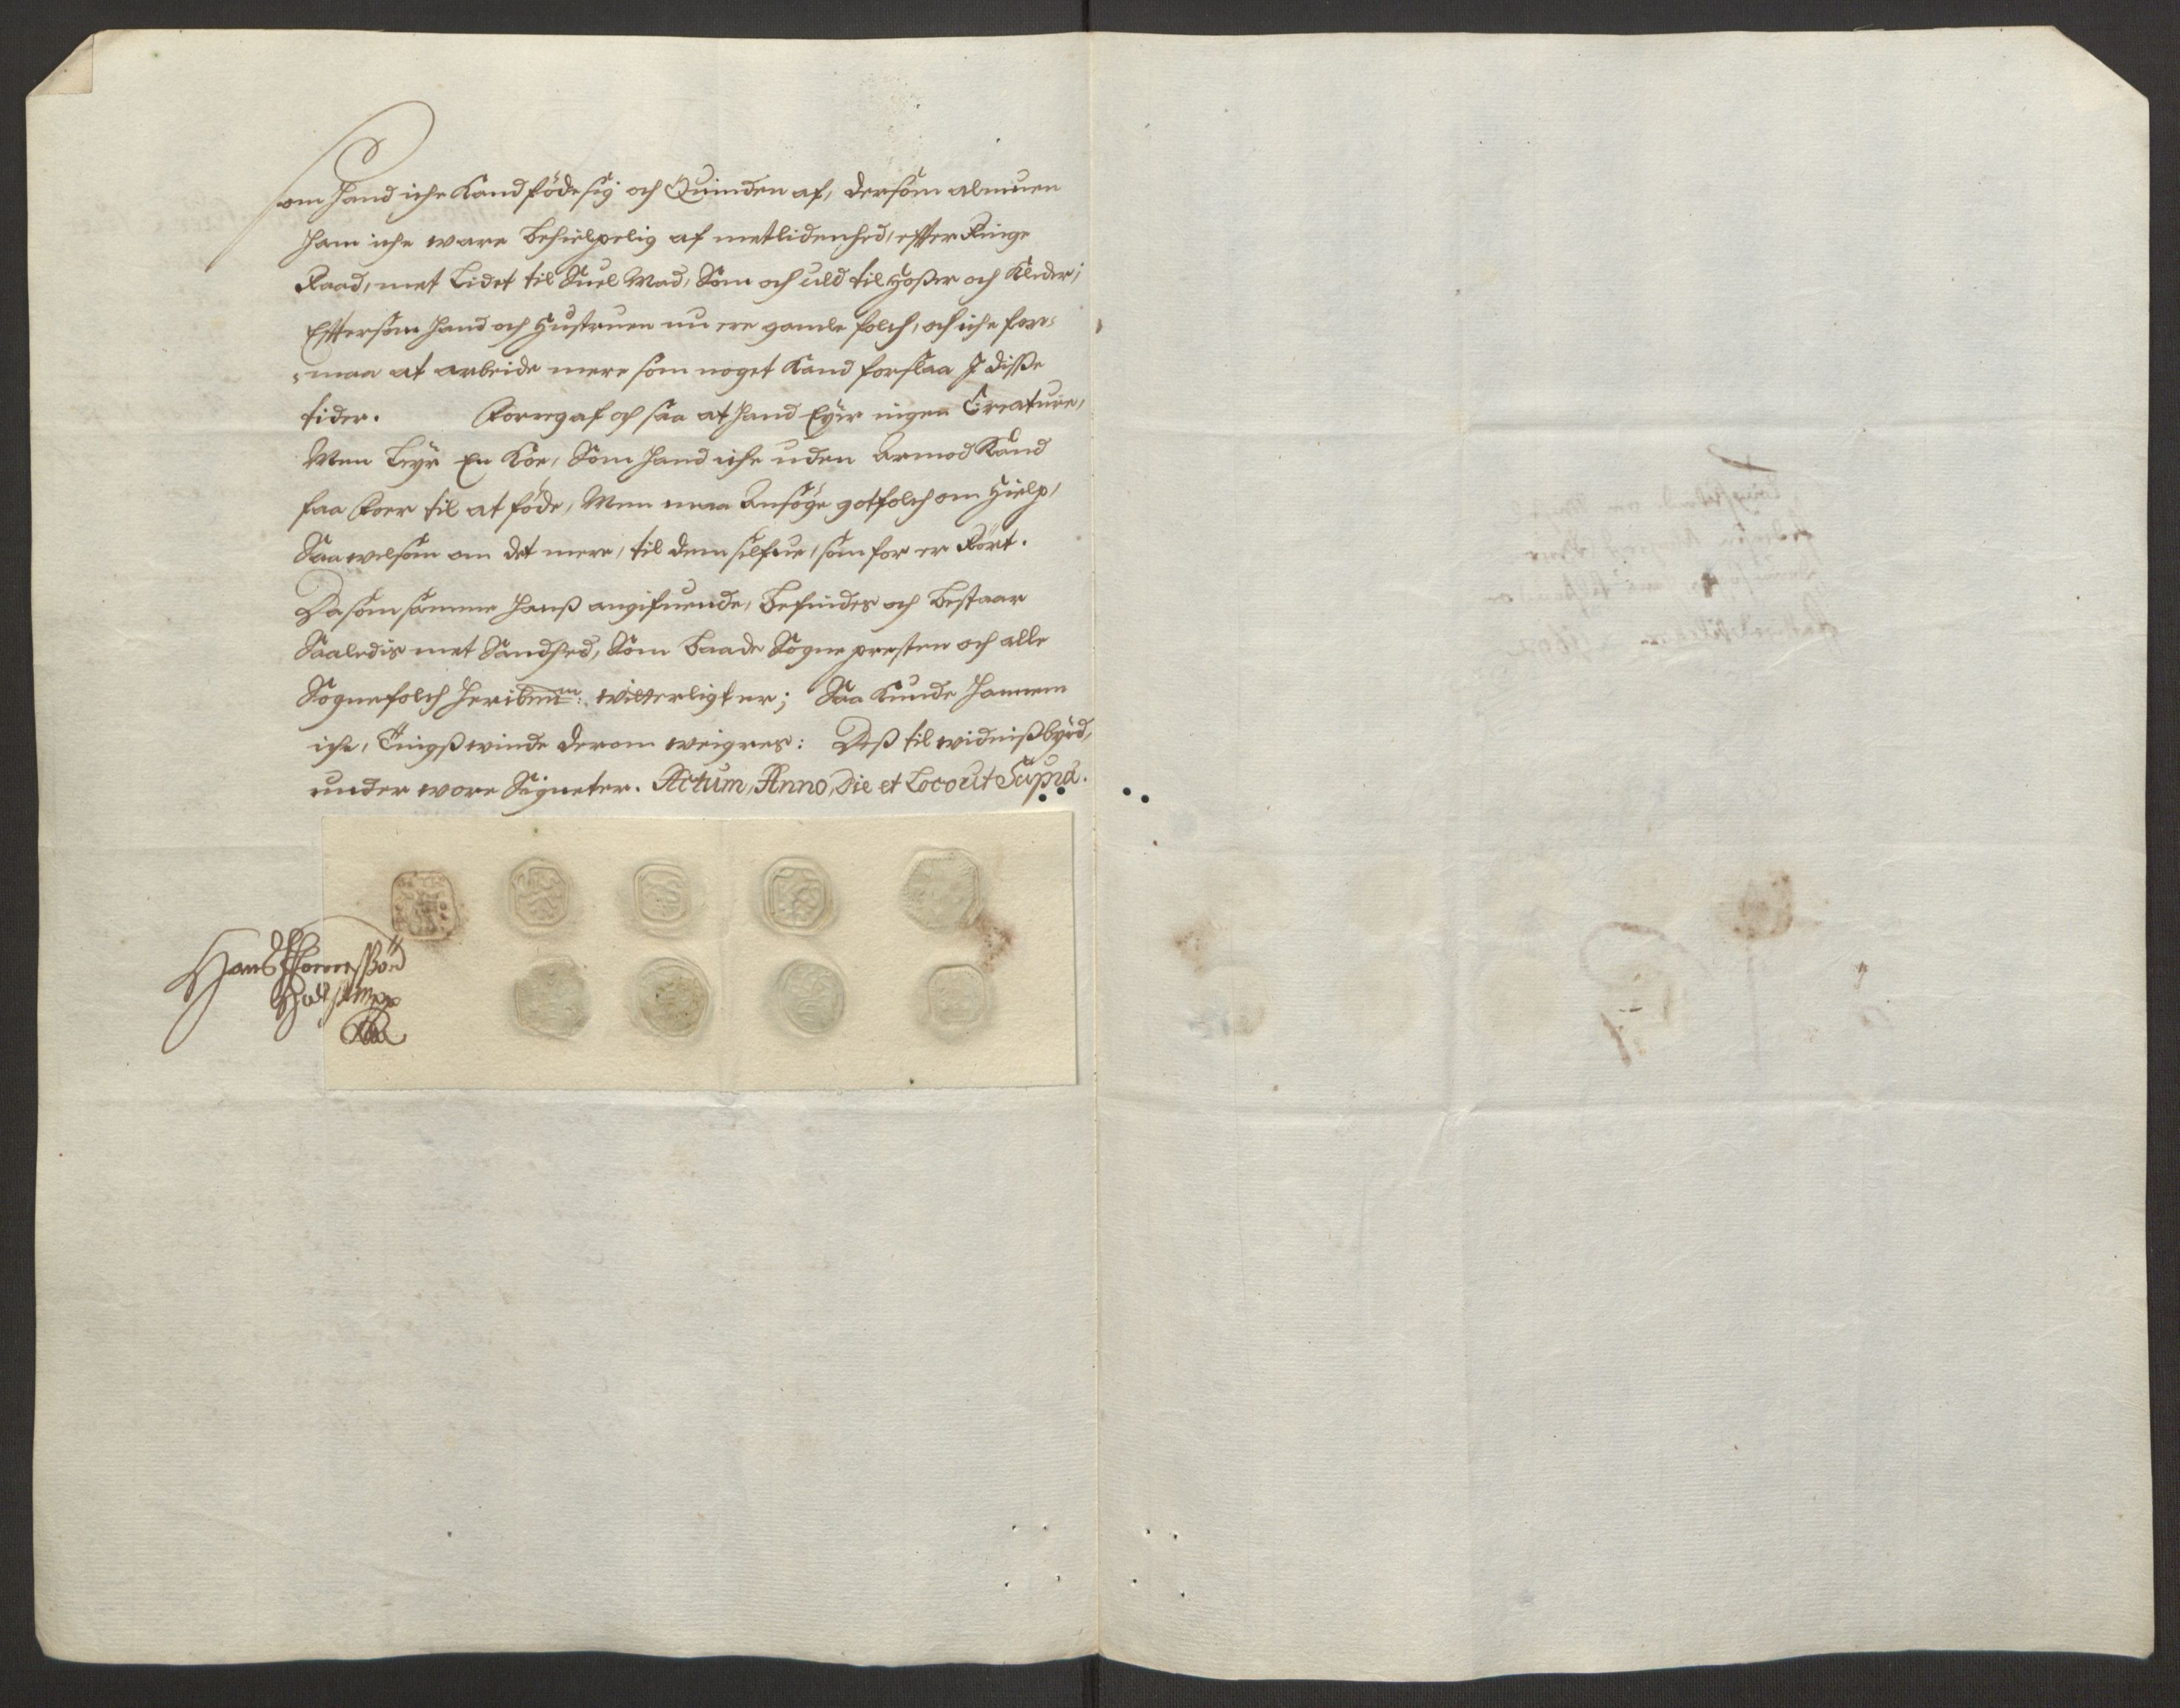 om Hand iche Kand föde sig och Quinden af, dersom almuen
ham iche ware behielpelig af metlidenhed, effter Ringe
Raad, met Lidet til Suel Mad, Som och uld til Hoßer och Kleder;
Efftersom Hand och Hustruen nu ere gamle folch, och iche for-
-maa at arbeide mere som noget Kand forslaa J disse
tider. Forregaf och saa at Hand Eyer ingen Creature,
Men Leyr En Koe, Som Hand iche uden Armod Kand
faa Foer til at föde, Men maa Ansöge gotfolch om Hielp,
Saa welsom om det mere, til dem selfue, som for er Rört.
Da som samme Hanß angifuende, befindes och bestaar
Saaledis met Sandhed, Som baade Sogne presten och alle
Sognefolch Heribm: witterligt er; Saa Kunde Hannem
iche, Tingß winde derom weigres: Deß til widnißbyrd,
under wore Signeter. Actum, Anno, Die et Loco ut Supra.
Hans